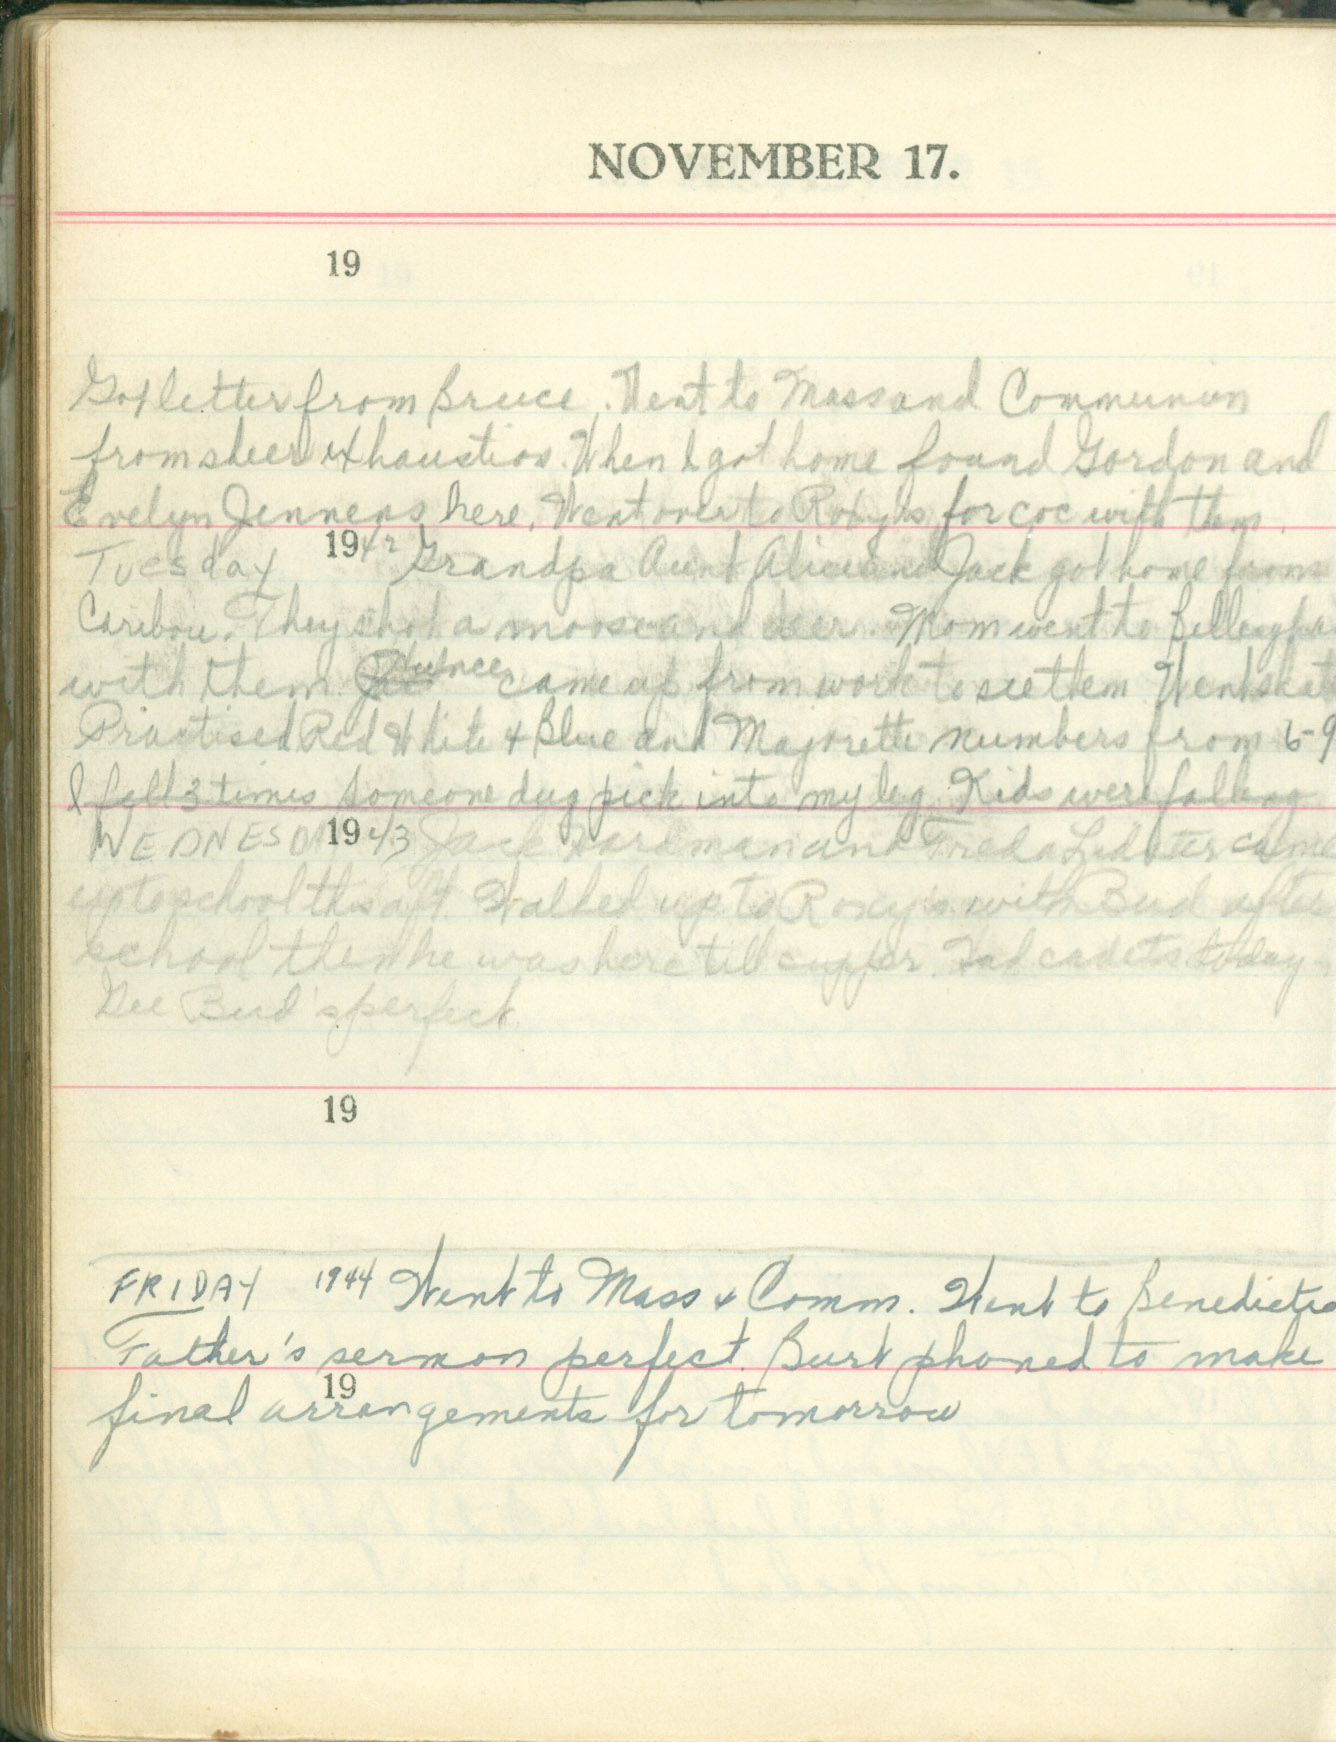 NOVEMBER 17.
19
Got letter from Bruce. Went to Mass and Communion
from sheer exhaustion. When I got home found Gordon and
Evelyn Jennens here. Went over to Roxy's for coc with them.
Tuesday 1942 Grandpa Aunt Alice and Jack got home from
Caribou. They shot a moose and deer. Mom went to
with them. came up from work to see them. Went
Practised Red White & Blue and Majorette numbers from 6-9
I fell 3 times someone dug pick into my leg. Kids were falling
WEDNESDAY 1943 Jack Hardman and Freda came
up to school this aft. Walked up to Roxy's with Bud after
school then he was here till supper. Had cadets today
Gee Bud's perfect
19
FRIDAY 1944 Went to Mass & Comm. Went to
Father's sermon perfect. Burt phoned to make
19
final arrangements for tomorrow